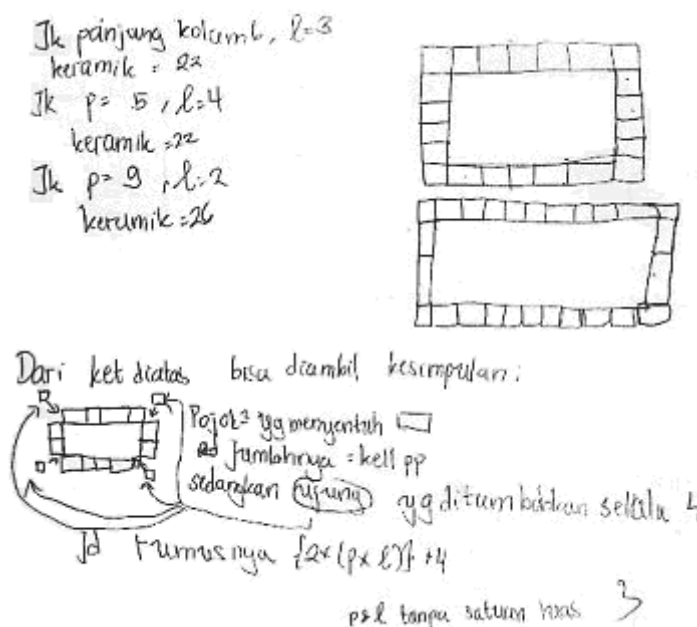 Jk panjang kolam 6, l=3
keramik = 22
Jk p= 5, l=4
keramik = 22
Jk p= 9, l=2
keramik = 26
Dari ket diatas bisa diambil kesimpulan:
Pojok² yg menyentuh
Jumlahnya = kell pp
sedangkan ujung yg ditambahkan selalu 4
Jd rumusnya {2x(p x l)} +4
p&l tanpa satuan luas